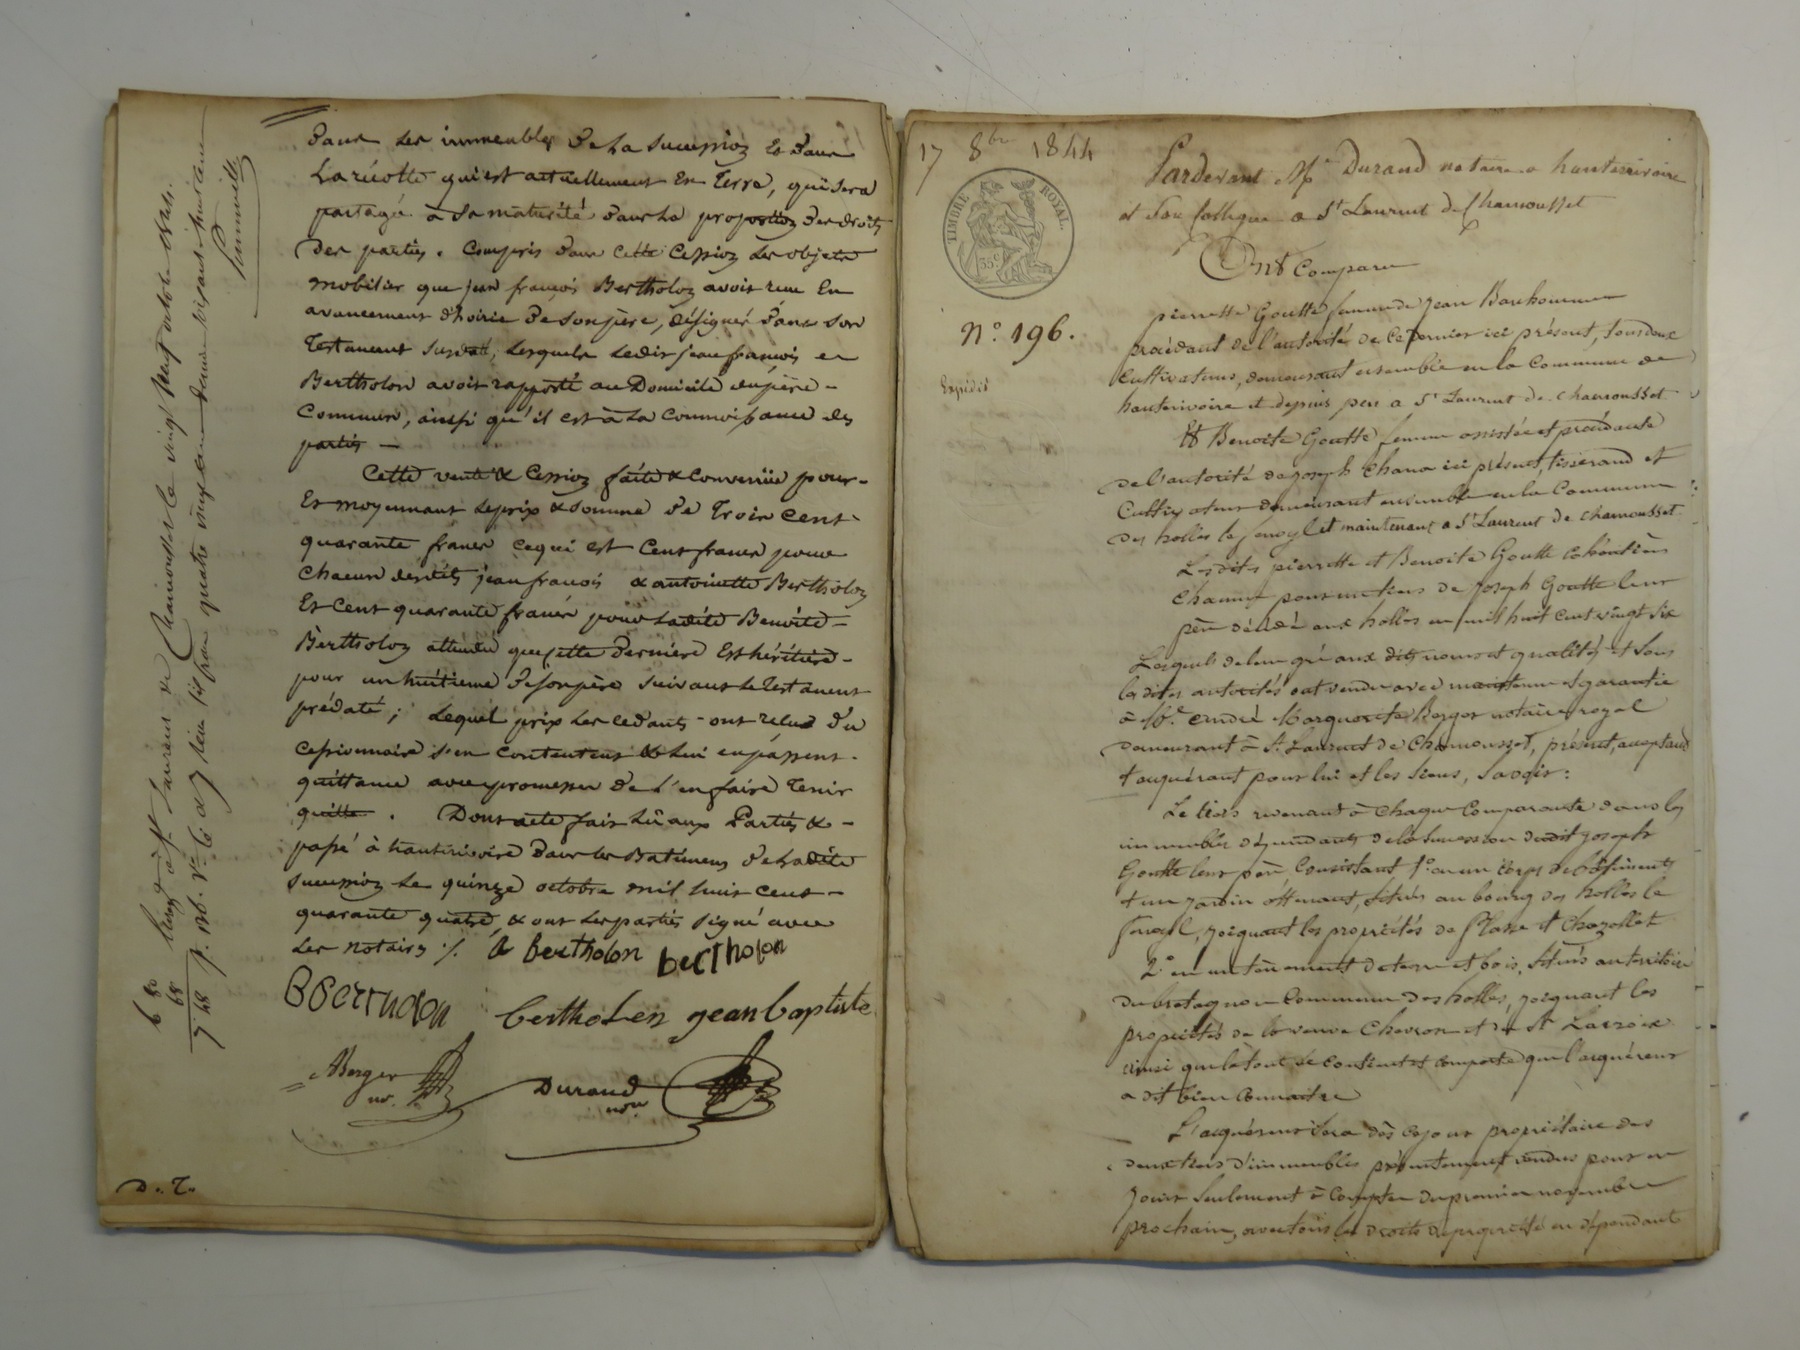 dans les immeubles de la succession et dans
la récolte qui est actuellement en terre, qui sera
partagé à sa maturité dans la proportion des droits
des parties. Compris dans cette cession les objets
mobilier que jean françois Bertholon avoit reçu en
avancement d'hoirie de son père, désignés dans son
testament susdaté, lesquels ledit jean françois
Bertholon avoit rapporté au domicile du père
commun, ainsi qu'il est à la connoissance des
parties
Cette vente & cession faite & convenüe pour
et moyennant le prix & somme de trois cent
quarante francs ce qui est cent francs pour
chacun desdits jean francois & antoinette Bertholon
et cent quarante francs pour ladite Benoite
Bertholon attendu que cette dernière est héritière
pour un huitieme de son père suivant le testament
prédaté ; lequel prix les cedants ont reçus du
cessionnaire s'en contentent & lui en passent
quittance avec promesse de l'en faire tenir
quitte. Dont acte fait lû aux parties &
passé à hauterivoire dans les batimens de ladite
succession le quinze octobre mil huit cent
quarante quatre, & ont les parties signé avec
les notaires ./. A bertholon bertholon
bertholon jean baptiste
Berger
no.
Durand
nore
D. T.
6 80
68
7 48
17 8bre 1844
TIMBRE ROYAL
35c
N° 196.
Expédié
Pardevant Me Durand notaire a hauterivoire
et son collegue a St Laurent de Chamousset
Ont Comparu
pierrette Goutte femme de jean Bonhomme
procédant de l'autorité de ce dernier ici présent, tous deux
cultivateurs, demeurant ensemble en la commune de
hauterivoire et depuis peu a St Laurent de chamousset
Et Benoite Goutte femme assistée et procédante
de l'autorité de joseph Chana ici présent, tisserand et
cultivateur demeurant ensemble en la commune
des holles le fenoyl et maintenant a St Laurent de chamousset
Lesdites pierrette et Benoite Goutte cohéritières
chacune pour un tiers de joseph Goutte leur
père décédé aux holles en mil huit cent vingt six
Lesquels de leur gré aux dits noms et qualités et sous
lesdites autorités ont vendu avec maintenue et garantie
à Me andré Marguerite Berger notaire royal
demeurant à St Laurent de Chamousset, présent, acceptant
et acquérant pour lui et les siens, savoir :
Le tiers revenant à chaque comparante dans les
immeubles dépendants de la succession dudit joseph
Goutte leur père, Consistant 1° en un corps de bâtiments
et un jardin attenant, situés au bourg des holles le
fenoyl, joignant les propriétés de Plasse et Chazollet
2° en un tènement de terre et bois, situés au territoire
du bretagnon commune des holles, joignant les
propriétés de la veuve Chevron et de St Lacroix
ainsi que le tout se contient et comporte que l'acquéreur
a dit bien connaitre
L'acquéreur sera dès ce jour propriétaire des
deux tiers d'immeubles présentement vendus pour en
jouir seulement à compter du premier novembre
prochain, avec tous les droits de propriété en dépendant